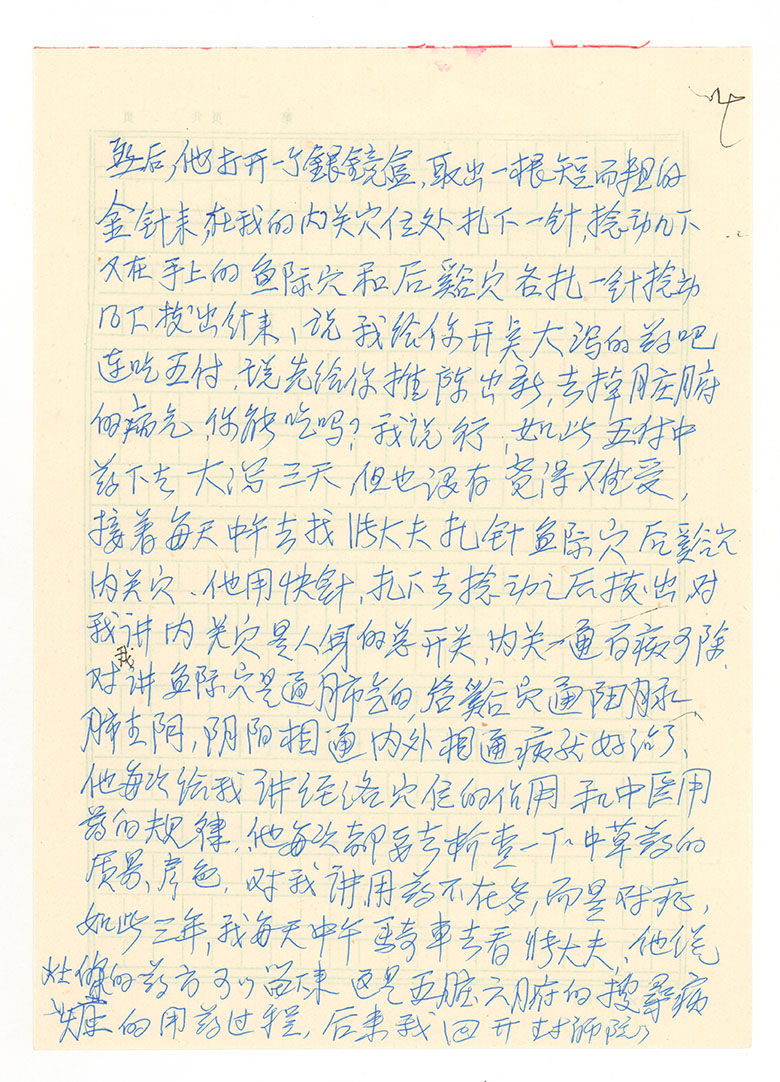 后,他打开一个银镜盒,取出一根短而粗的
金针来,在我的内关穴位处扎下一针,捻动几下
又在手上的鱼际穴和后谿穴各扎一针捻动
几下拔出针来,说我给你开些大泻的药吧
连吃五付,说先给你推陈出新,去掉脏腑
的病气,你能吃吗?我说行,如此五付中
药下去大泻三天,但也没有觉得难受,
接着每天中午去找 大夫扎针鱼际穴后谿穴
内关穴、他用快针,扎下去捻动之后拔出,对
我讲内关穴是人身的总开关,内关一通百病可除,
对我讲鱼际穴是通肺气的,后谿穴通阳脉
肺主阴,阴阳相通内外相通病就好治了、
他每次给我讲经络穴位的作用和中医用
药的规律,他每次都要去检查一下中草药的
质量、产色,对我讲用药不在多,而是对症,
如此三年,我每天中午骑車去看 大夫、他说
的药方可以留下来 这是五脏六腑的搜寻病
的用药过程,后来我回开封师院